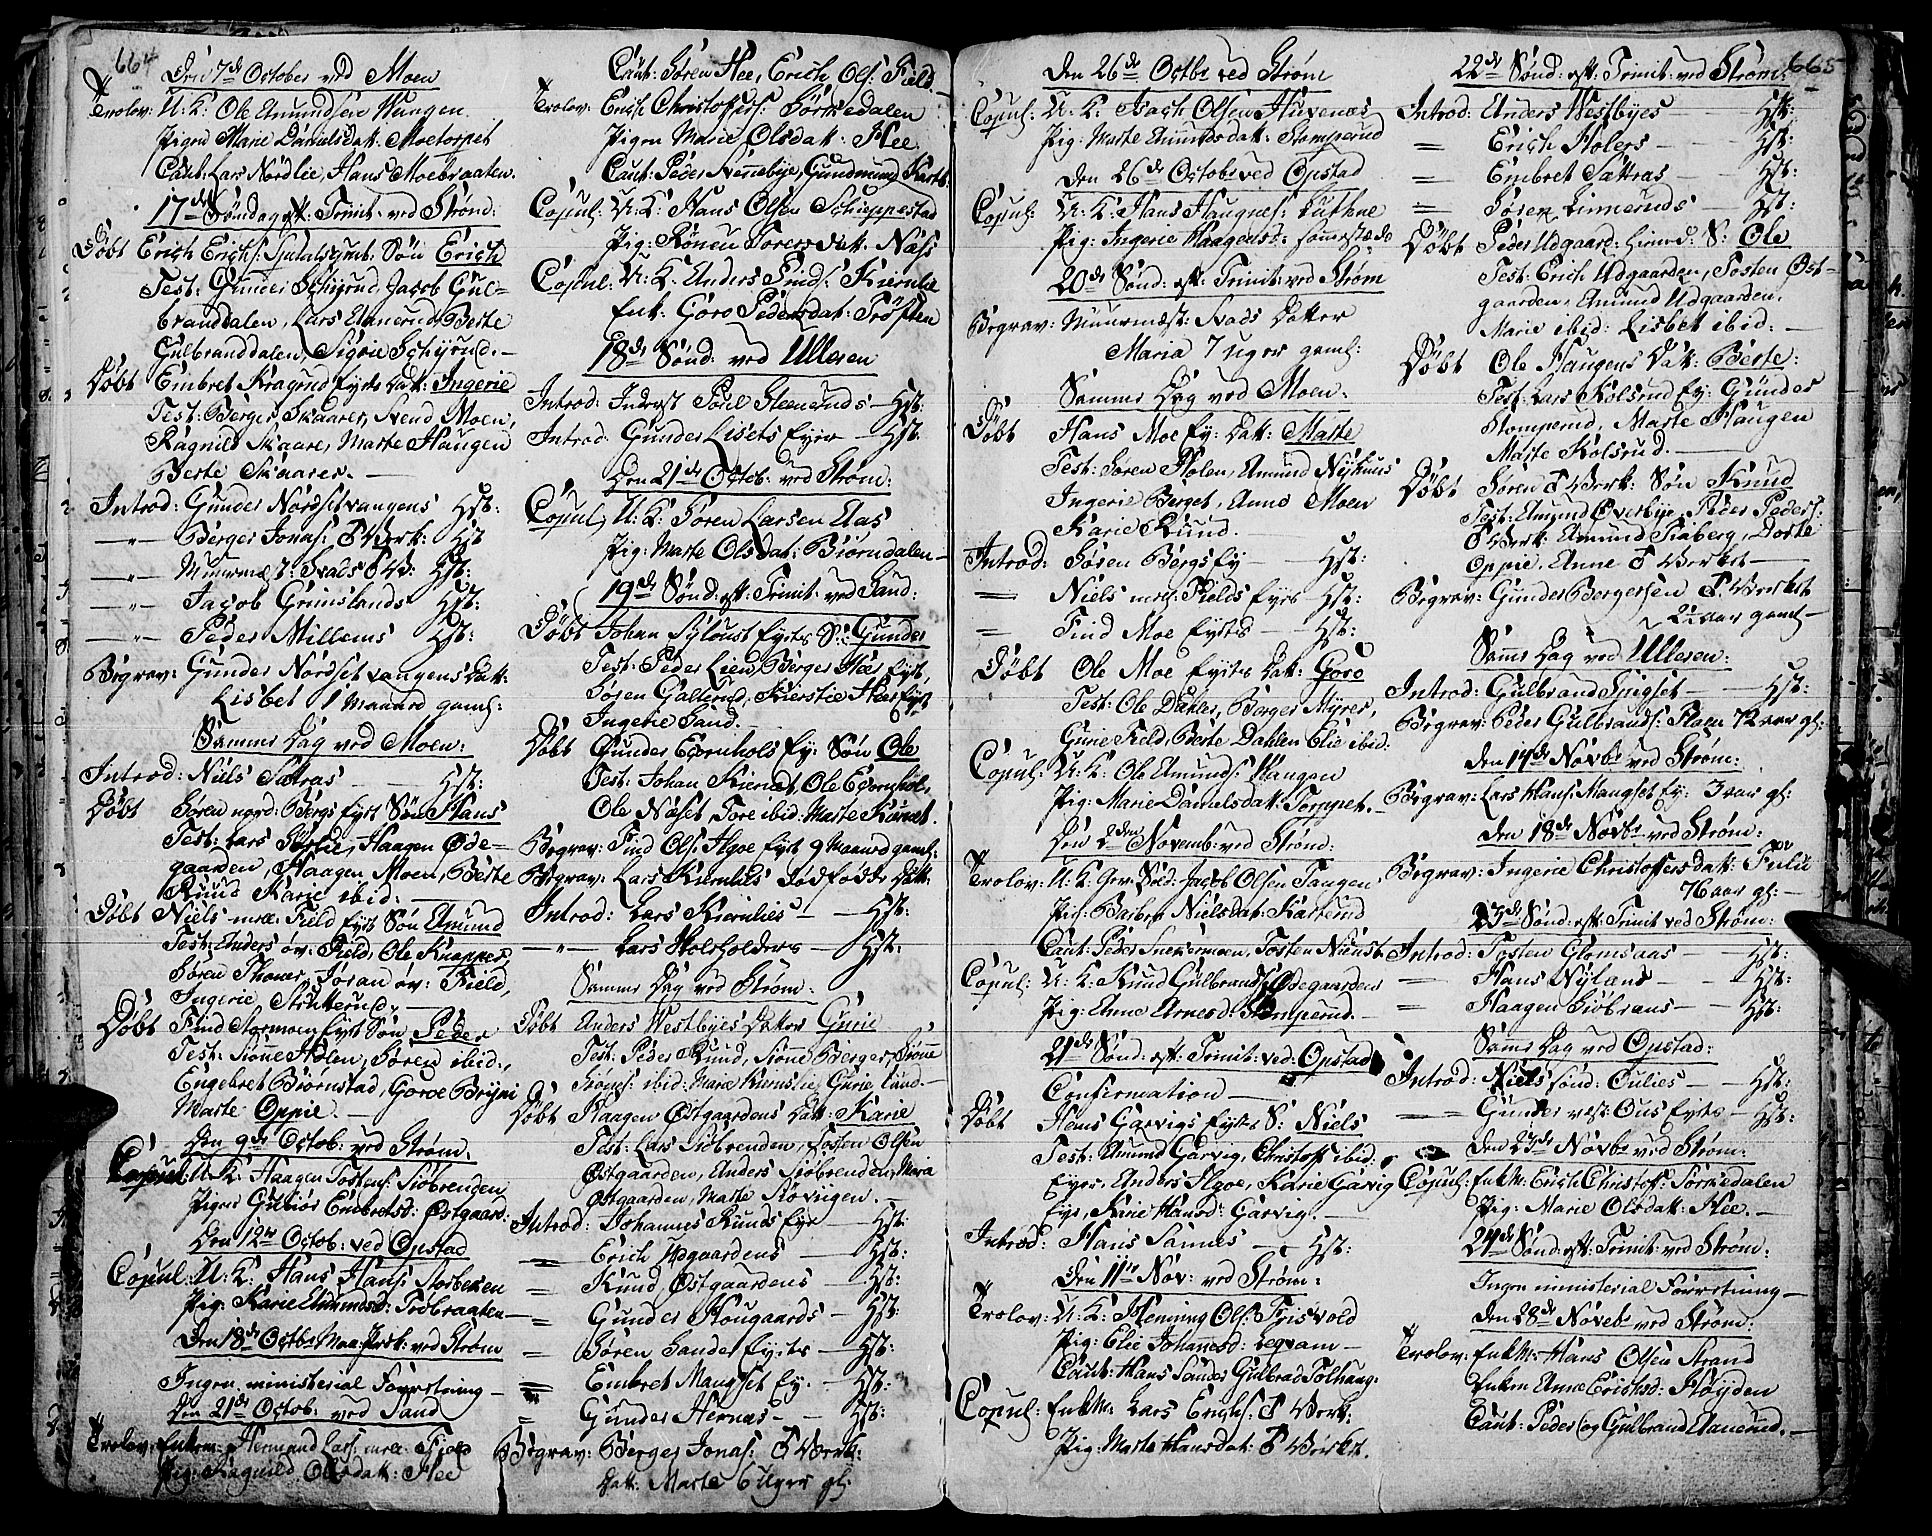 664
Den 7de October ved Moen
Trolov: U: K: Ole Amundsen Wangen
Pigen Marie Danielsdatt: Moetorpet
Caut: Lars Nordlie, Hans Moebraaten.
17de Søndag eft: Trinit: ved Strøm:
Døbt Erich Erichs: Søn Erich
Test: Gunder Jacob Gul-
branddalen, Lars Berte
Gulbranddalen, Sigrie
Døbt Embret Kragrud Eyes Dat: Ingerie
Test: Berger Skaarer, Svend Moen,
Ragnild Skaare, Marte Haugen
Berte Skaarer.
Introd: Gunder Nordsetvangens Hst:
—"— Berger Jonas: O Werk: Hst
—"— Muurmest: Svads Hst:
—"— Jacob Grimslands Hst:
—"— Peder Millems Hst:
Begrav: Gunder Nordsetvangens Datt:
Lisbet 1 Maaned gaml:
Samme Dag ved Moen:
Introd: Niels Sætras Hst:
Døbt Søren Bergs Eyes Søn Hans
Test: Lars Haagen Øde-
gaarden, Haagen Moen, Berte
Ruud Karie ibid:
Døbt Niels Field Eyes Søn Amund
Test: Anders øv: Field, Ole Knapper,
Søren Thoner, Jøran øv: Field,
Ingerie
Døbt Find Stormoen Eyes Søn Peder
Test: Holen, Søren ibid:,
Engebret Biørnstad, Goroe
Marte Oppie.
Den 9de Octob: ved Strøm.
Copul: U: K: Haagen Tostens: Siøbrenden
Pigen Embretsd: Østgaard.
Den 12te Octob: ved Opstad
Copul: U: K: Hans Hans: Storbeken
Pig: Karie Amundsd: Trøbraaten
Den 18de Octbr ved Strøm
Ingen ministerial Forretning
Den 21de Octob: ved Sand
Trolov: Enkem: Hermand Lars: Field
Pig: Ragnild Olsdatt: Hee
Caut: Søren Hee, Erich Ols: Field.
Trolov: Erich Christophers: Tørkedalen
Pigen Marie Olsdatt: Hee
Caut: Peder Gundmund
Copul: U: K: Hans Olsen Schieppestad
Pig: Rønau Toresdatt: Næss
Copul: U: K: Anders Finds: Kiernlie
Enk: Goro Pedersdat: Trøften
18de Sønd: ved Ulleren
Introd: Inderst Poul Steenerud Hst:
Introd: Gunder Lisets Eyer Hst:
Den 21de Octob: ved Strøm:
Copul: U: K: Søren Larsen Aas
Pig: Marte Olsdat: Biørndalen
19de Sønd: eft: Trinit: ved Sand:
Døbt Johan Eyes S: Gunder
Test: Peder Lien, Berger Eyes,
Søren Kierstie Hee Eyes
Ingerie Sand.
Døbt Gunder Eornhols Ey: Søn Ole
Test: Johan Ole Eornhol,
Ole Næset, Tore ibid: Marte
Begrav: Find Ols: Eyes 9 Maaned gaml:
Begrav: Lars Kiernlies dødfødde Datt:
Introd: Lars Kiernlies Hst:
—"— Lars Holsholders Hst:
Samme Dag ved Strøm:
Døbt Anders Westbyes Datter Gunie
Test: Peder Ruud, Berger
ibid: Marie Kiernslie, Gurie Sund
Døbt Haagen Østgaardens Datt: Karie
Test: Lars Siøbrenden, Tosten Olsen
Østgaarden, Anders Siøbrenden, Maria
Østgaarden, Marte
Introd: Johannes Ruuds Eye Hst:
— Erich Udgaardens Hst:
— Knud Østgaardens Hst:
— Gunder Hougaards Hst:
— Søren Sander Eyes Hst:
— Embret Mangset Ey. Hst:
— Gunder Hernæs Hst:
Begrav: Berger Jonas: O Werk:
Datt: Marte 6 Uger gl:
Den 26de Octbr ved Strøm
Copul: U: K: Isach Olsen
Pig: Marte Amundsdatt: Stomperud
Den 26de Octobr ved Opstad
Copul: U: K: Hans Haugnes:
Pig: Ingerie Haagensd:
20de Sønd: eft: Trinit: ved Strøm
Begrav: Muurmest: Svads Datter
Maria 7 uger gaml:
Samme Dag ved Moen:
Døbt Hans Moe Ey: Dat: Marte
Test: Søren Holen, Amund Nyhuus
Ingerie Berget, Anne Moen
Karie Ruud.
Introd: Søren Bergs Ey Hst:
— Niels Fields Eyes Hst:
— Find Moe Eyes Hst:
Døbt Ole Moe Eyes Dat: Goro
Test: Ole Dahler, Berger Myrer,
Gurie Field, Berte Dahlen Elie ibid.
Copul: U: K: Ole Amunds: Wangen
Pig: Marie Danielsdatt: Torppet.
Den 2den Novemb: ved Strøm:
Trolov: U: K: Gev: Sold: Jacob Olsen Tangen
Pig: Barbro Nielsdat: Karterud
Caut: Peder Snekermoen, Tosten
Copul: U: K: Knud Gulbrands: Ødegaarden
Pig: Anne Arnesd: Stomperud.
21de Sønd: eft: Trinit: ved: Opstad
Confirmation
Døbt Hans Garvigs Eyes S: Niels
Test: Amund Garvig, Christoff: ibid.
Eyer, Anders Karie Garvig
Eye, Karie Hansd: Garvig.
Introd: Hans Sannes Hst:
Den 11te Nov: ved Strøm:
Trolov: U: K: Henning Ols: Frisvold
Pig: Elie Johannesd: Legvam
Caut: Hans Sander Gulbrad Tolhaug.
Copul: Enkm: Lars Erichs: O Werk:
Pig: Marte Hansdat: O Werket.
22de Sønd: eft: Trinit: ved Strøm: 665
Introd: Anders Westbyes Hst:
— Erich Holers Hst:
— Embret Sættras Hst:
— Søren Linneruds Hst:
Døbt Peder Udgaard: S: Ole
Test: Erich Udgaarden, Tosten Øst-
gaarden, Amund Udgaarden,
Marie ibid: Lisbet ibid:
Døbt Ole Haugens Dat: Berte:
Test: Lars Kolsrud Ey: Gunder
Stomperud, Marte Haugen
Marte Kolsrud.
Døbt Søren O Werk: Søn Knud
Test: Amund Overbye, Peder Peders:
O Werk: Amund Siøberg, Dorte
Oppie, Anne O Werket
Begrav: Gunder Bergersen O Werket
22 aar gaml
Samme Dag ved Ulleren:
Introd: Gulbrand Grigset Hst:
Begrav: Peder Gulbrands: Floen 72 aar gl:
Den 14de Novbr ved Strøm:
Begrav: Lars Hans: Mangset Ey: 3 aar gl:
Den 18de Novbr ved Strøm:
Begrav: Ingerie Christoffersdatt: Fulu
76 aar gl:
23de Sønd: eft: Trinit ved Strøm:
Introd: Tosten Glomsaas Hst:
— Hans Nylans Hst:
— Haagen Siøbrans Hst:
Samme Dag ved Opstad:
Introd: Niels sønd: Culies Hst:
— Gunder vest: Ous Eyes Hst:
Den 23de Novbr ved Strøm:
Copul: Enkm: Erich Christof: Tørkedalen
Pig: Marie Olsdatt: Hee.
24de Sønd: eft: Trinit: ved Strøm:
Ingen ministerial Forretning
Den 28de Novebr ved Strøm:
Trolov: Enkm: Hans Olsen Strand
Enken Anne Erichsd: Høyden
Caut: Peder og Gulbrand Aamoed.